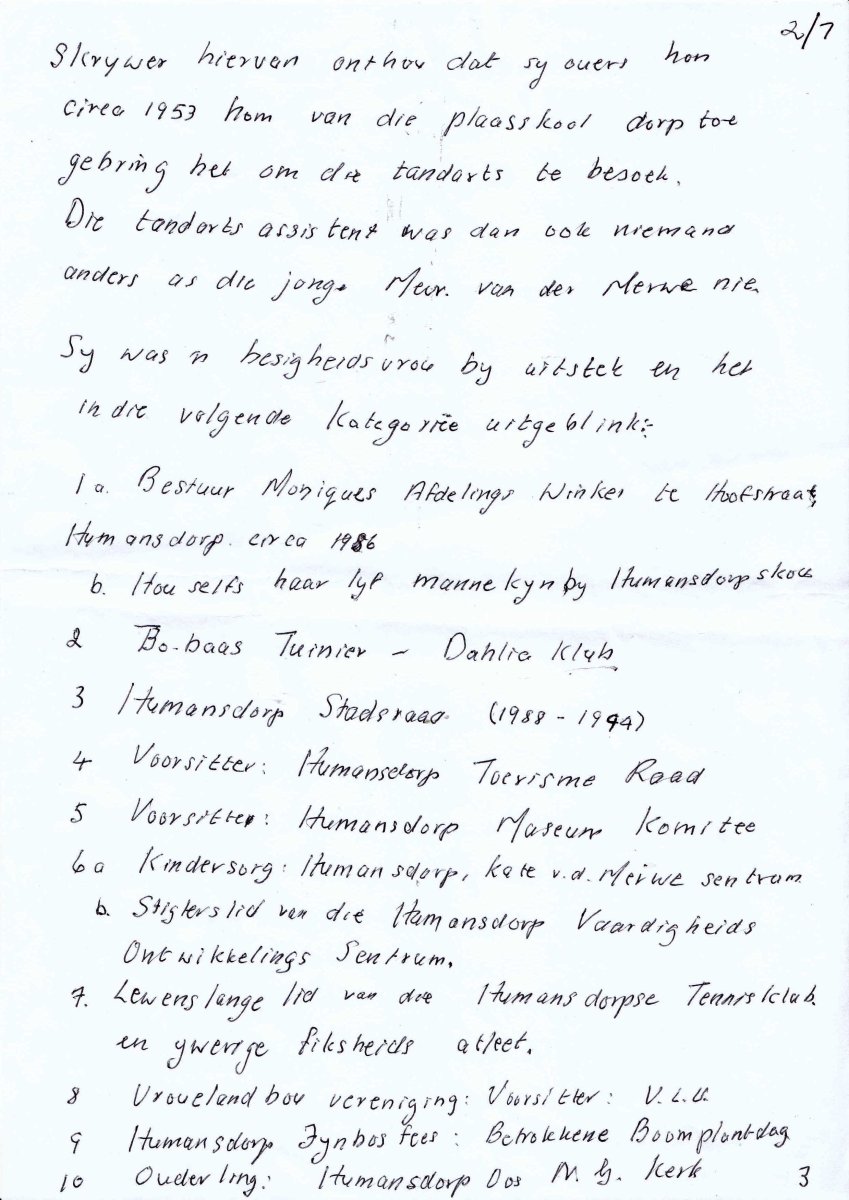 2/7
Skrywer hiervan onthou dat sy ouers hom
circa 1953 hom van die plaasskool dorp toe
gebring het om die tandarts te besoek.
Die tandarts assistent was dan ook niemand
anders as die jonge Mevr. van der Merwe nie.
Sy was 'n besigheidsvrou by uitstek en het
in die volgende Kategorieë uitgeblink:-
1a. Bestuur Moniques Afdelings Winkel te Hoofstraat,
Humansdorp. circa 1986
b. Hou selfs haar lyf mannekyn by Humansdorp skou
2 Bo-baas Tuinier - Dahlia Klub
3 Humansdorp Stadsraad (1988 - 1994)
4 Voorsitter: Humansdorp Toerisme Raad
5 Voorsitter: Humansdorp Museum Komitee
6a Kindersorg: Humansdorp, Kate v.d. Merwe sentrum
b. Stigterslid van die Humansdorp Vaardigheids
Ontwikkelings Sentrum.
7. Lewenslange lid van die Humansdorpse Tennisklub.
en ywerige fiksheids atleet.
8 Vrouelandbou vereniging: Voorsitter: V.L.V.
9 Humansdorp Fynbos fees: Betrokkene Boomplantdag
10 Ouderling: Humansdorp Oos N.G. Kerk
3